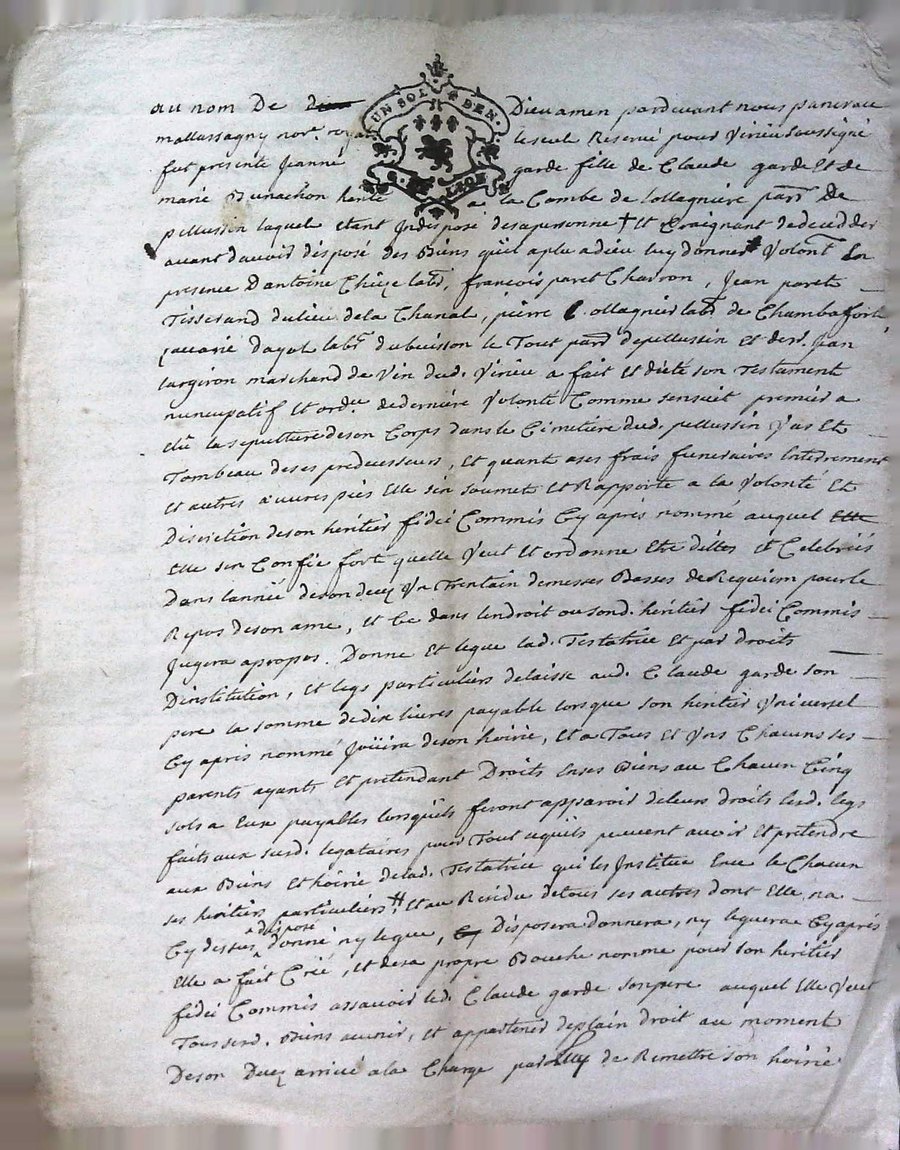 UN SOL 4 DEN.
LION
au nom De dieu Dieu amen pardevant nous
mallassagny nore. royal le seul Reservé pour Virieu soussigné
fut presente Jeanne garde fille de Claude garde et de
marie Dunachon hente a la Combe de Lollagniere parr. De
pellussin laquel etant Indisposé desapersonne + et Craignant dedecedder
avant davoir disposé des Biens qu'il a plu adieu luy donner Volont. En
presence D'antoine Chieze labr, francois paret Charron, Jean paret
Tisserand dulieu dela Chanal, pierre ollagnier labr de Chambaforte
Zacarie dayol labr du buisson le Tout parr. depellussin et de sr. Jean
largiron marchand de Vin dud. Virieu a fait et dicté son Testament
nuncupatif et ordre dederniere Volonté Comme sensuit premier a
elu la sepulture deson Corps dans le Cimitiére dud. pellussin Vas Et
Tombeau deses predecesseurs, et quant ases frais funeraires Enterrement
et autres œuvres pies Elle sen soumet et Rapporte a la Volonté Et
Discretion deson heritier fideicommis Cy apres nommé auquel Elle
Elle sen Confie fort quelle Veut et ordonne Etre dittes et Celebrées
Dans lannée deson decez Un Trentain demesses Basses deRequiem pour le
Repos deson ame, et Ce dans lendroit ou sond. heritier fidei Commis
Jugera apropos. Donne et legue lad. Testatrice et par droits
Dinstitution, et legs particuliers delaisse aud. Claude garde son
pere la somme dedix livres payable lorsque son heritier Universel
Cy après nommé Joüira deson hoirie, et a Tous et Uns Chacuns ses
parents ayants et pretendant Droits en ses Biens au Chacun Cinq
sols a Eux payables lorsquils feront apparoir deleurs droits lesd. legs
faits aux susd. legataires pour Tout cequils peuvent avoir et pretendre
aux Biens et hoirie delad. Testatrice qui les Institue Eux le Chacun
ses heritiers particuliers, et au Residu detous ses autres dont Elle na
disposé
Cy dessus donné ny legue, Cy Disposera donnera, ny leguera Cy après
Elle a fait Créé, et desa propre Bouche nommé pour son heritier
fidei Commis assavoir led. Claude garde son pere auquel Elle Veut
Tous sesd. Biens avenir, et appartenir deplain droit au moment
Deson Decez arrivé ala Charge par luy de Remettre son hoirie